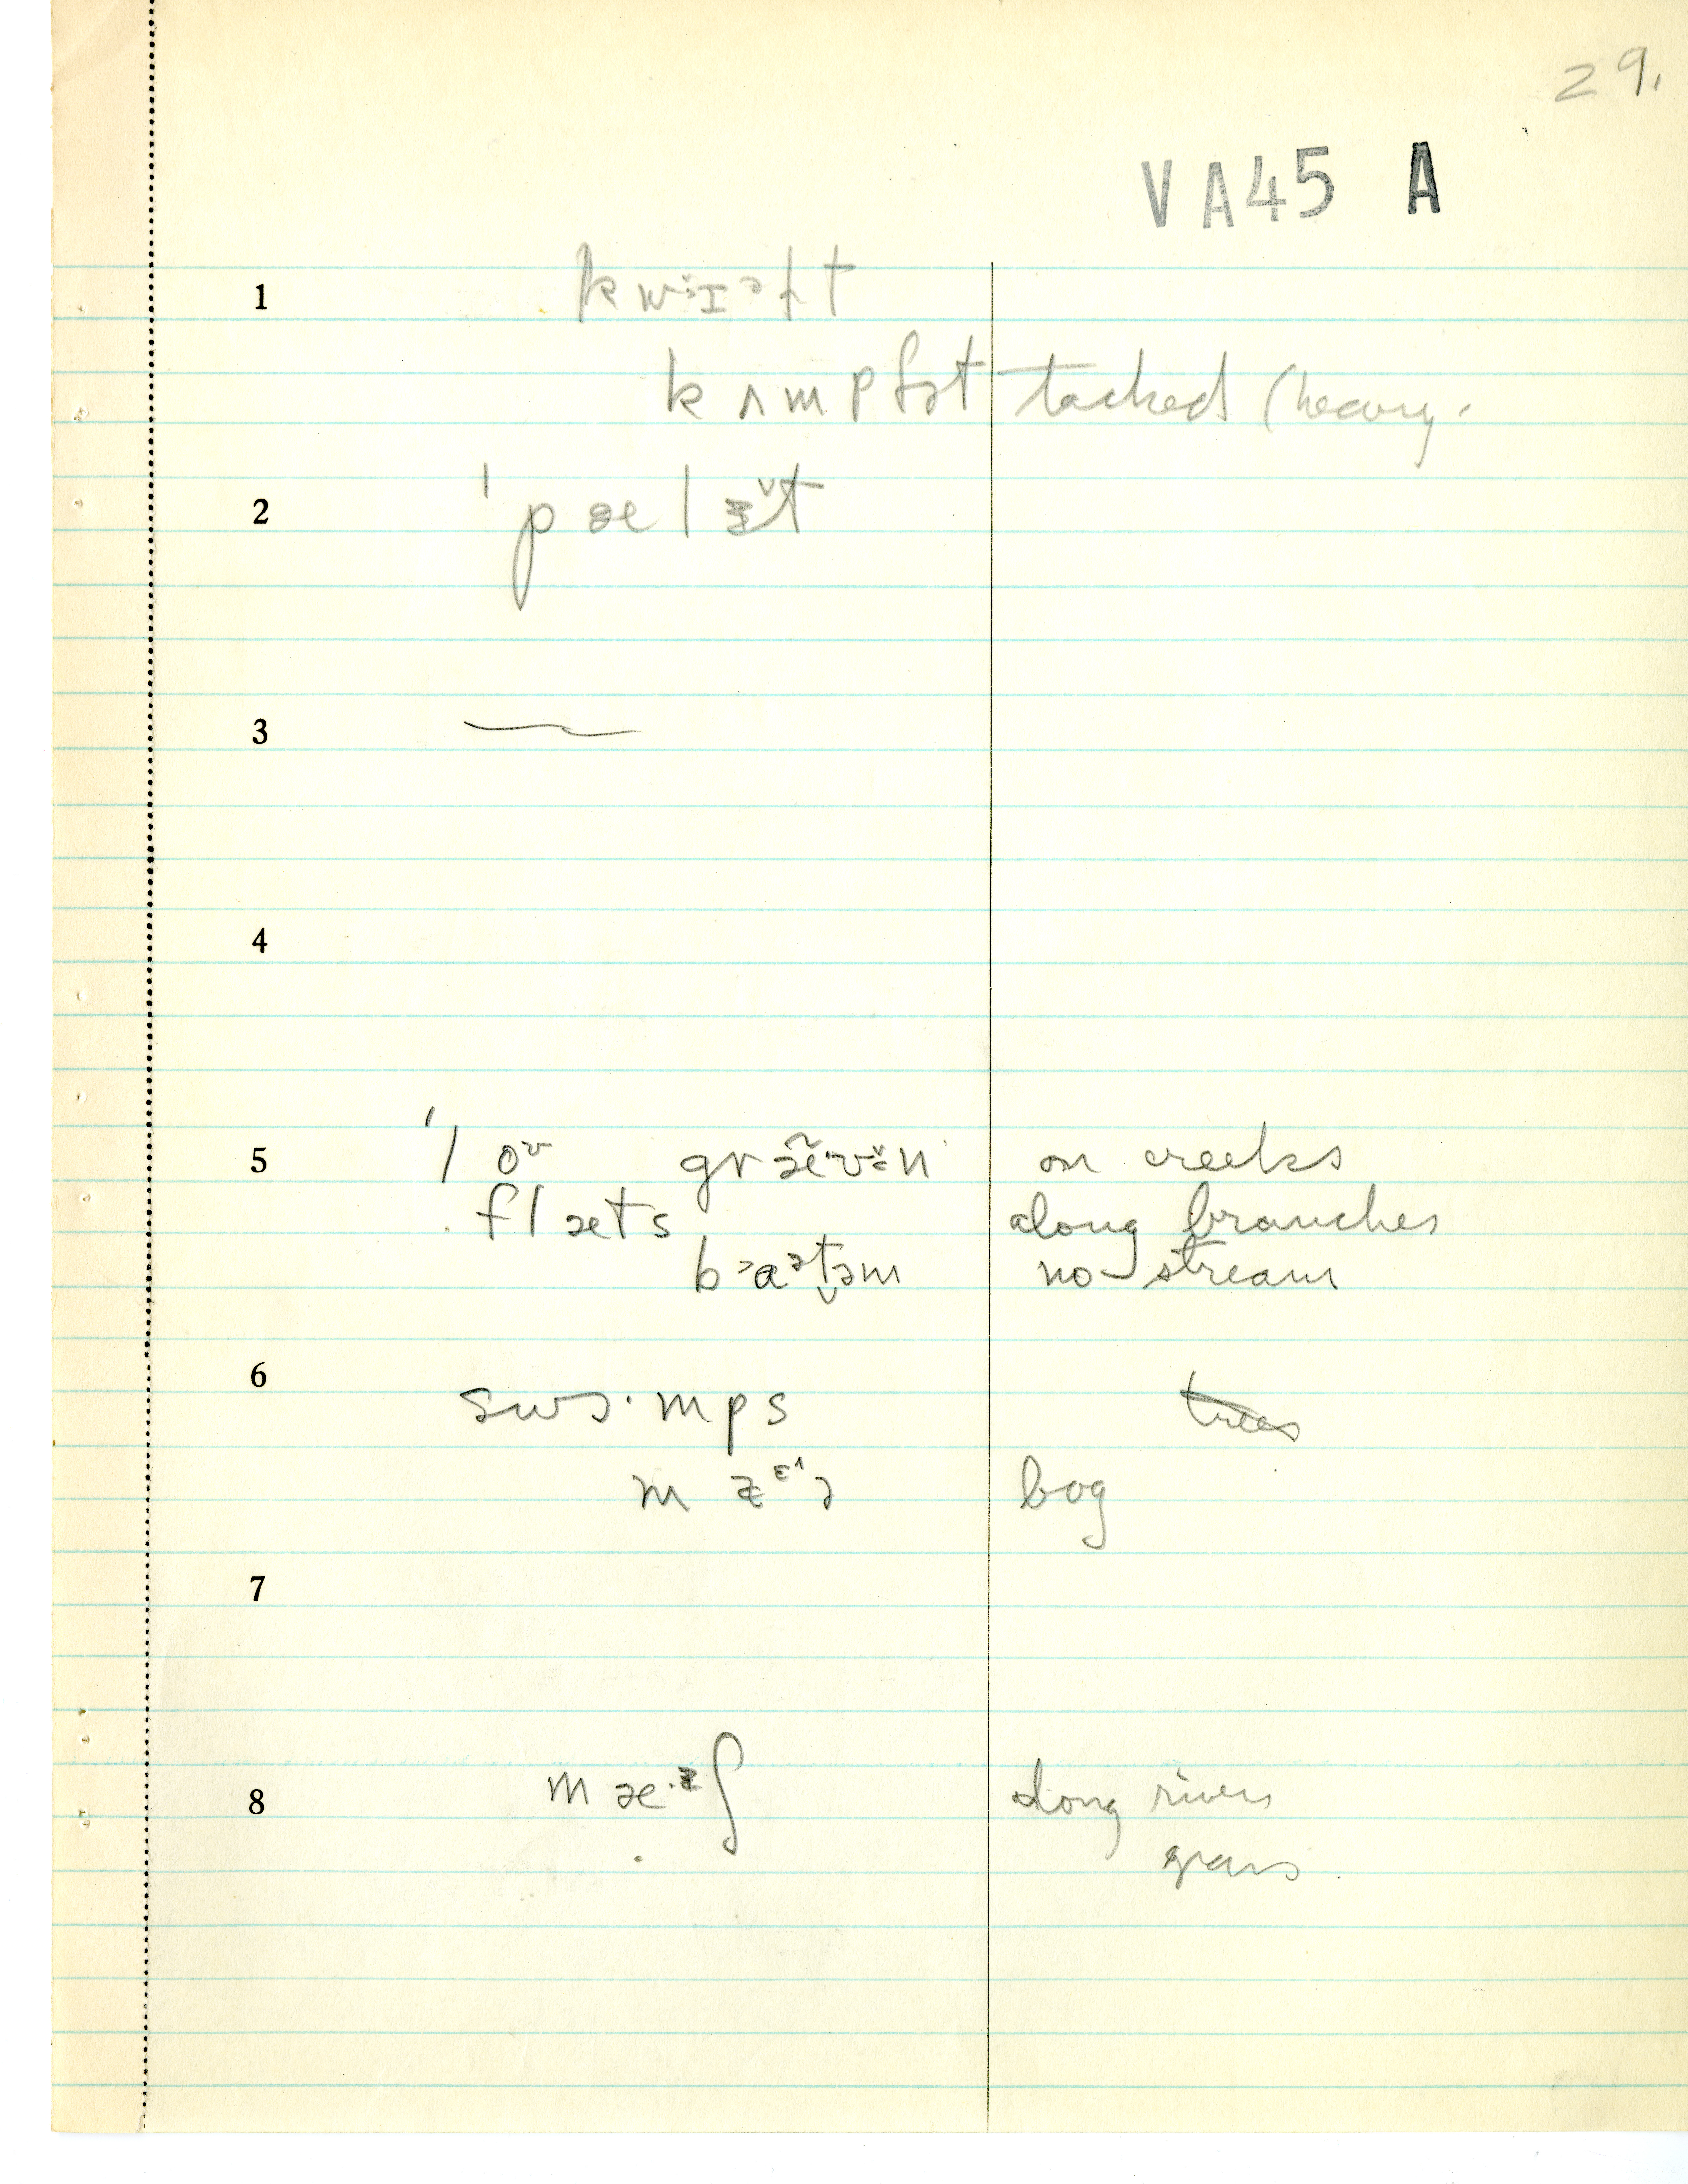 29.
VA45 A
1 kwɪəɫt
kʌmpfət tacked (heavy.
2 ˈpælɪ̆t
3
4
5 ˈloʊ grævən on creeks
flæts along branches
bɑətəm no stream
6 swɔ·mps trees
bog
7
8 mæ·ʃ along rivers
grass